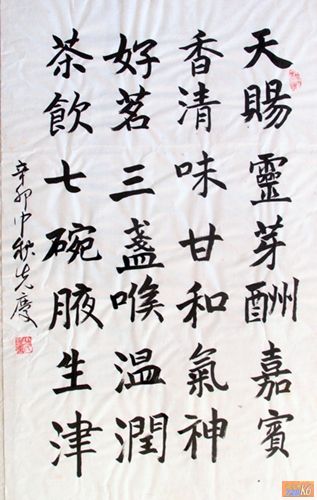 天賜靈芽酬嘉賓
香清味甘和氣神
好茗三盞喉温潤
茶飲七碗腋生津
辛卯中秋先慶